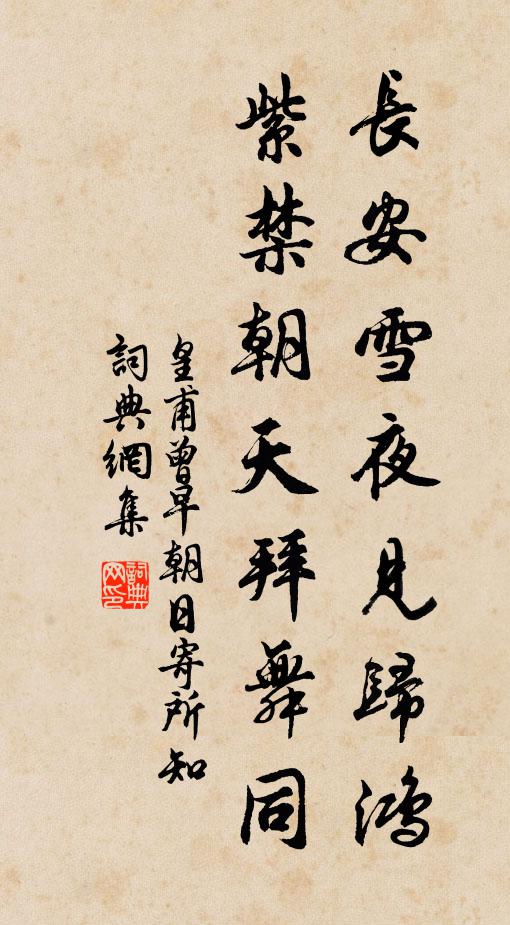 長安雪夜見歸鴻
紫禁朝天拜舞同
皇甫曾早朝日寄所知
詞典網集
詞典網印